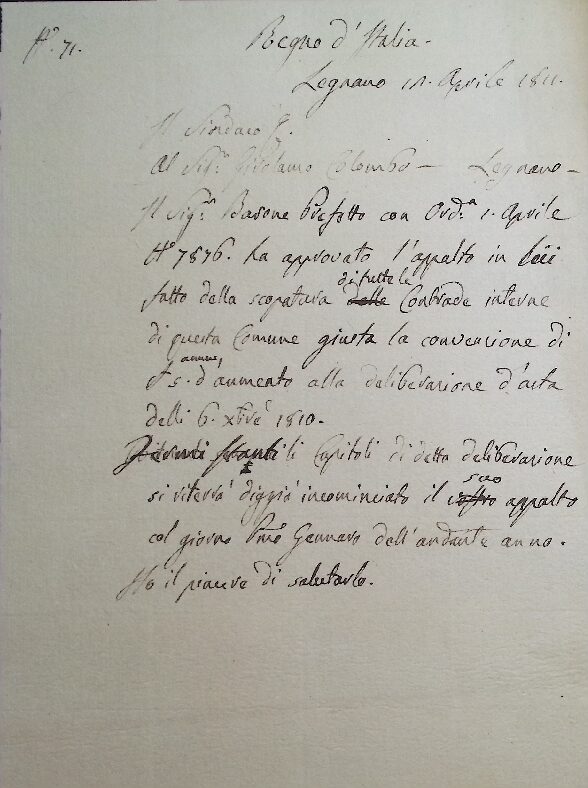 N.° 71.
Regno d'Italia.
Legnano 12. Aprile 1811.
Il Sindaco
Al Sig.r Girolamo Colombo — Legnano —
Il Sig.r Barone Prefetto con Ord.a 1. Aprile
N.° 7876. ha approvato l'appalto in lei
fatto della scopatura delle di tutte le Contrade interne
di questa Comune giusta la convenzione di
£ 5. annue, d'aumento alla deliberazione d'asta
delli 6. Xbre 1810.
stanti li Capitoli di detta deliberazione
si riterrà diggià incominciato il vostro suo appalto
col giorno Pmo Gennaro dell'andante anno.
Ho il piacere di salutarlo.